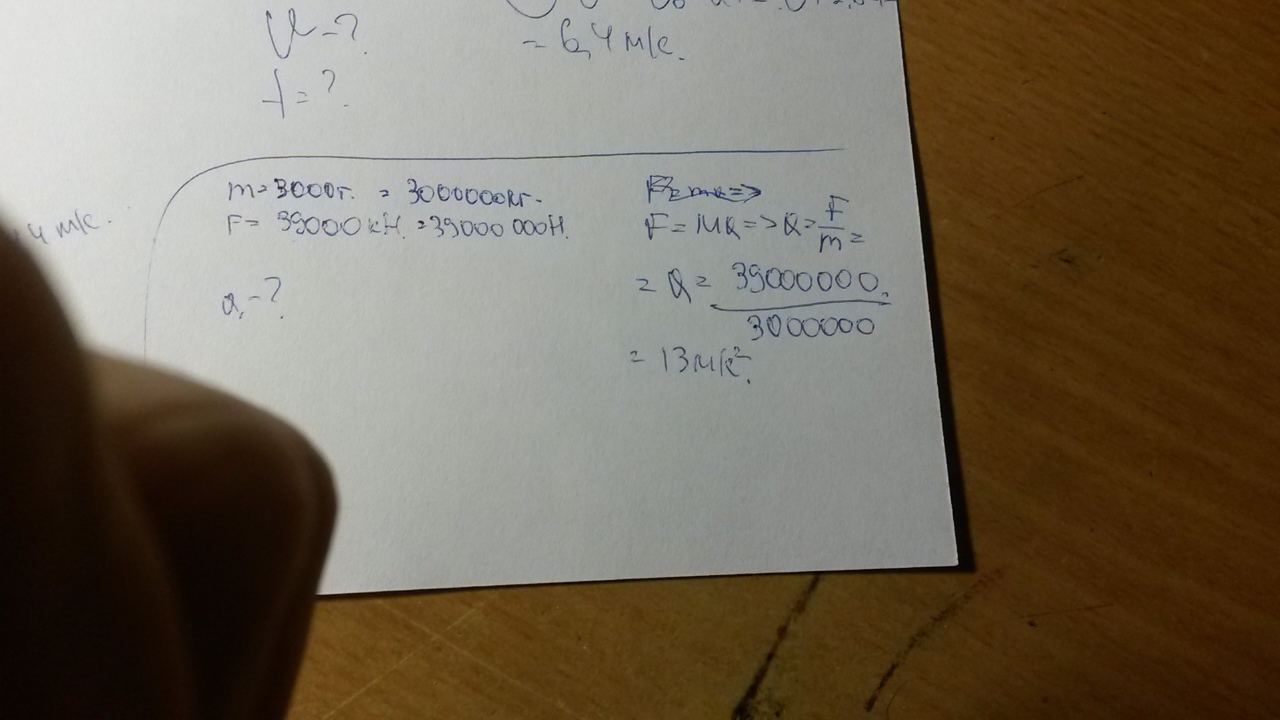 V - ?
= 6,4 м/с.
t = ?
4 м/с.
m = 3000т. = 3000000кг.
F = 39000 кН. = 39000 000Н.
F = ma => a = F/m =
a - ?
= a = 39000000.
3000000
= 13м/с².